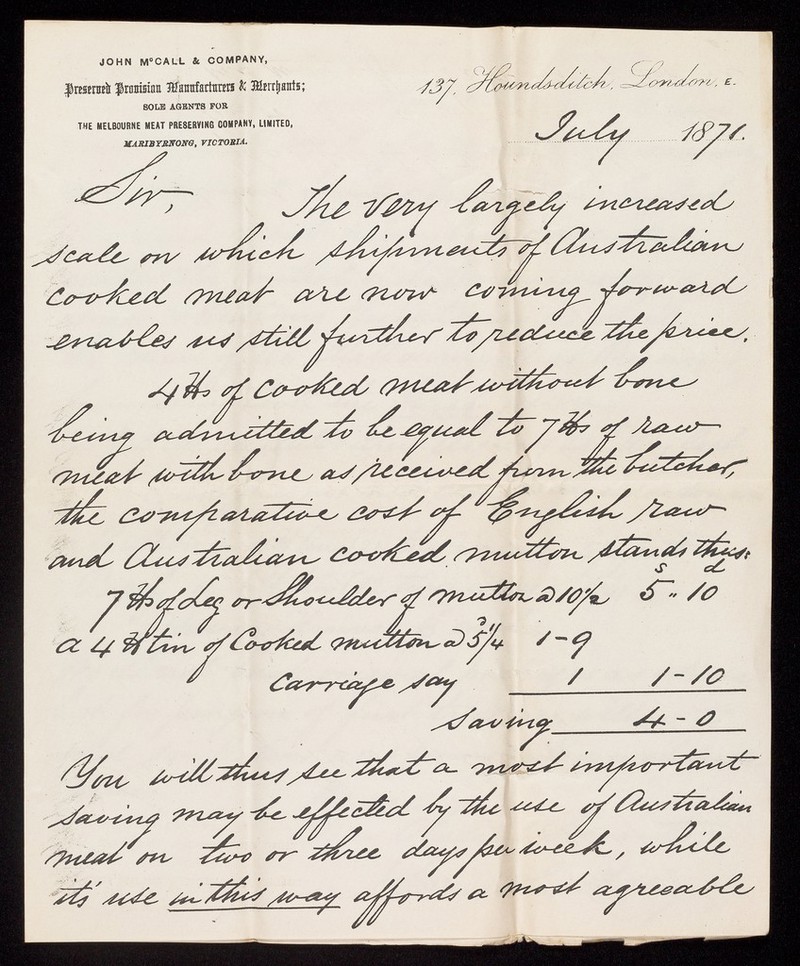 JOHN McCALL & COMPANY,
Preserved Provision Manufacturers & Merchants;
SOLE AGENTS FOR
THE MELBOURNE MEAT PRESERVING COMPANY, LIMITED,
MARIBYRNONG, VICTORIA.
137, Houndsditch, London, E.
July 1871.
Sir,
The very largely increased
scale on which shipments of Australian
cooked meat are now coming forward
enables us still further to reduce the price.
4 lbs of cooked meat without bone
being admitted to be equal to 7 lbs of raw
meat with bone as received from the butcher,
the comparative cost of English raw
and Australian cooked mutton stands thus:
s d
7 lbs of Leg or Shoulder of mutton @ 10½ 5 " 10
a 4 lb tin of Cooked mutton @ 5¼ 1-9
carriage say 1 1-10
saving 4-0
You will thus see that a most important
saving may be effected by the use of Australian
meat on two or three days per week, while
its' use in this way affords a most agreeable